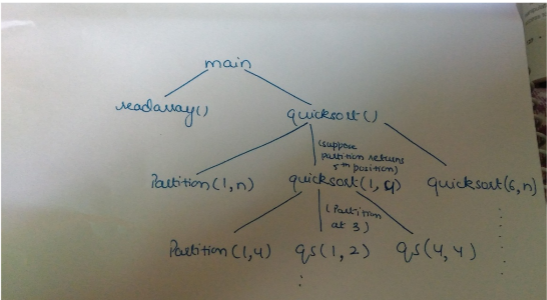 main
readarray() quicksort()
(suppose
partition returns
5th position)
Partition(1,n) quicksort(1,4) quicksort(6,n)
(Partition
at 3)
Partition(1,4) qs(1,2) qs(4,4)